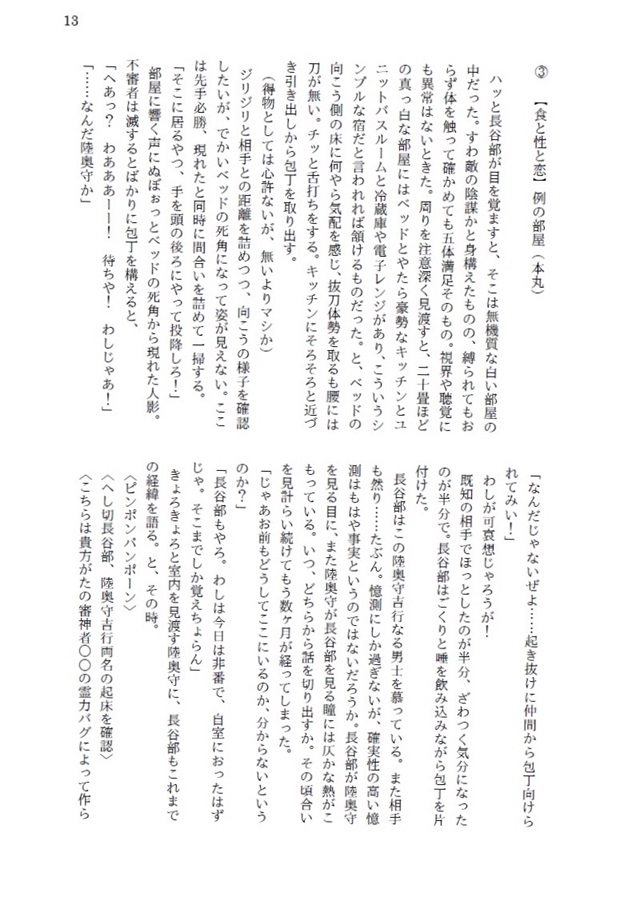 13
③　【食と性と恋】例の部屋（本丸）
　ハッと長谷部が目を覚ますと、そこは無機質な白い部屋の
中だった。すわ敵の陰謀かと身構えたものの、縛られてもお
らず体を触って確かめても五体満足そのもの。視界や聴覚に
も異常はないときた。周りを注意深く見渡すと、二十畳ほど
の真っ白な部屋にはベッドとやたら豪勢なキッチンとユ
ニットバスルームと冷蔵庫や電子レンジがあり、こういうシ
ンプルな宿だと言われれば頷けるものだった。と、ベッドの
向こう側の床に何やら気配を感じ、抜刀体勢を取るも腰には
刀が無い。チッと舌打ちをする。キッチンにそろそろと近づ
き引き出しから包丁を取り出す。
（得物としては心許ないが、無いよりマシか）
　ジリジリと相手との距離を詰めつつ、向こうの様子を確認
したいが、でかいベッドの死角になって姿が見えない。ここ
は先手必勝、現れたと同時に間合いを詰めて一掃する。
「そこに居るやつ、手を頭の後ろにやって投降しろ！」
　部屋に響く声にぬぼぉっとベッドの死角から現れた人影。
不審者は滅するとばかりに包丁を構えると、
「へあっ？　わあああーー！　待ちや！　わしじゃあ！」
「……なんだ陸奥守か」
「なんだじゃないぜよ……起き抜けに仲間から包丁向けら
れてみい！」
　わしが可哀想じゃろうが！
　既知の相手でほっとしたのが半分、ざわつく気分になった
のが半分で。長谷部はごくりと唾を飲み込みながら包丁を片
付けた。
　長谷部はこの陸奥守吉行なる男士を慕っている。また相手
も然り……たぶん。憶測にしか過ぎないが、確実性の高い憶
測はもはや事実というのではないだろうか。長谷部が陸奥守
を見る目に、また陸奥守が長谷部を見る瞳には仄かな熱がこ
もっている。いつ、どちらから話を切り出すか。その頃合い
を見計らい続けてもう数ヶ月が経ってしまった。
「じゃあお前もどうしてここにいるのか、分からないという
のか？」
「長谷部もやろ。わしは今日は非番で、自室におったはず
じゃ。そこまでしか覚えちょらん」
　きょろきょろと室内を見渡す陸奥守に、長谷部もこれまで
の経緯を語る。と、その時。
〈ピンポンパンポーン〉
〈へし切長谷部、陸奥守吉行両名の起床を確認〉
〈こちらは貴方がたの審神者〇〇の霊力バグによって作ら